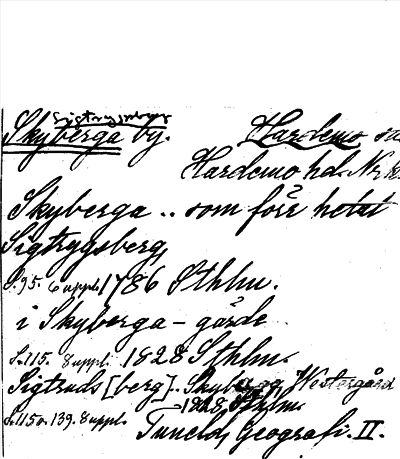 Sigtryggsberg
Skyberga by. Hardemo sn
Hardemo hd. Nrk.
Skyberga .. som förr hetat
Sigtrygsberg,
S. 95. 6 uppl. 1786 Sthlm.
i Skyberga - gärde
S. 115. 8 uppl. 1828 Sthlm.
Sigtruds [berg].. Skyberga, Westergård
S. 115 o. 139. 8 uppl. 1828, Sthlm.
Tunelds Geografi. II.